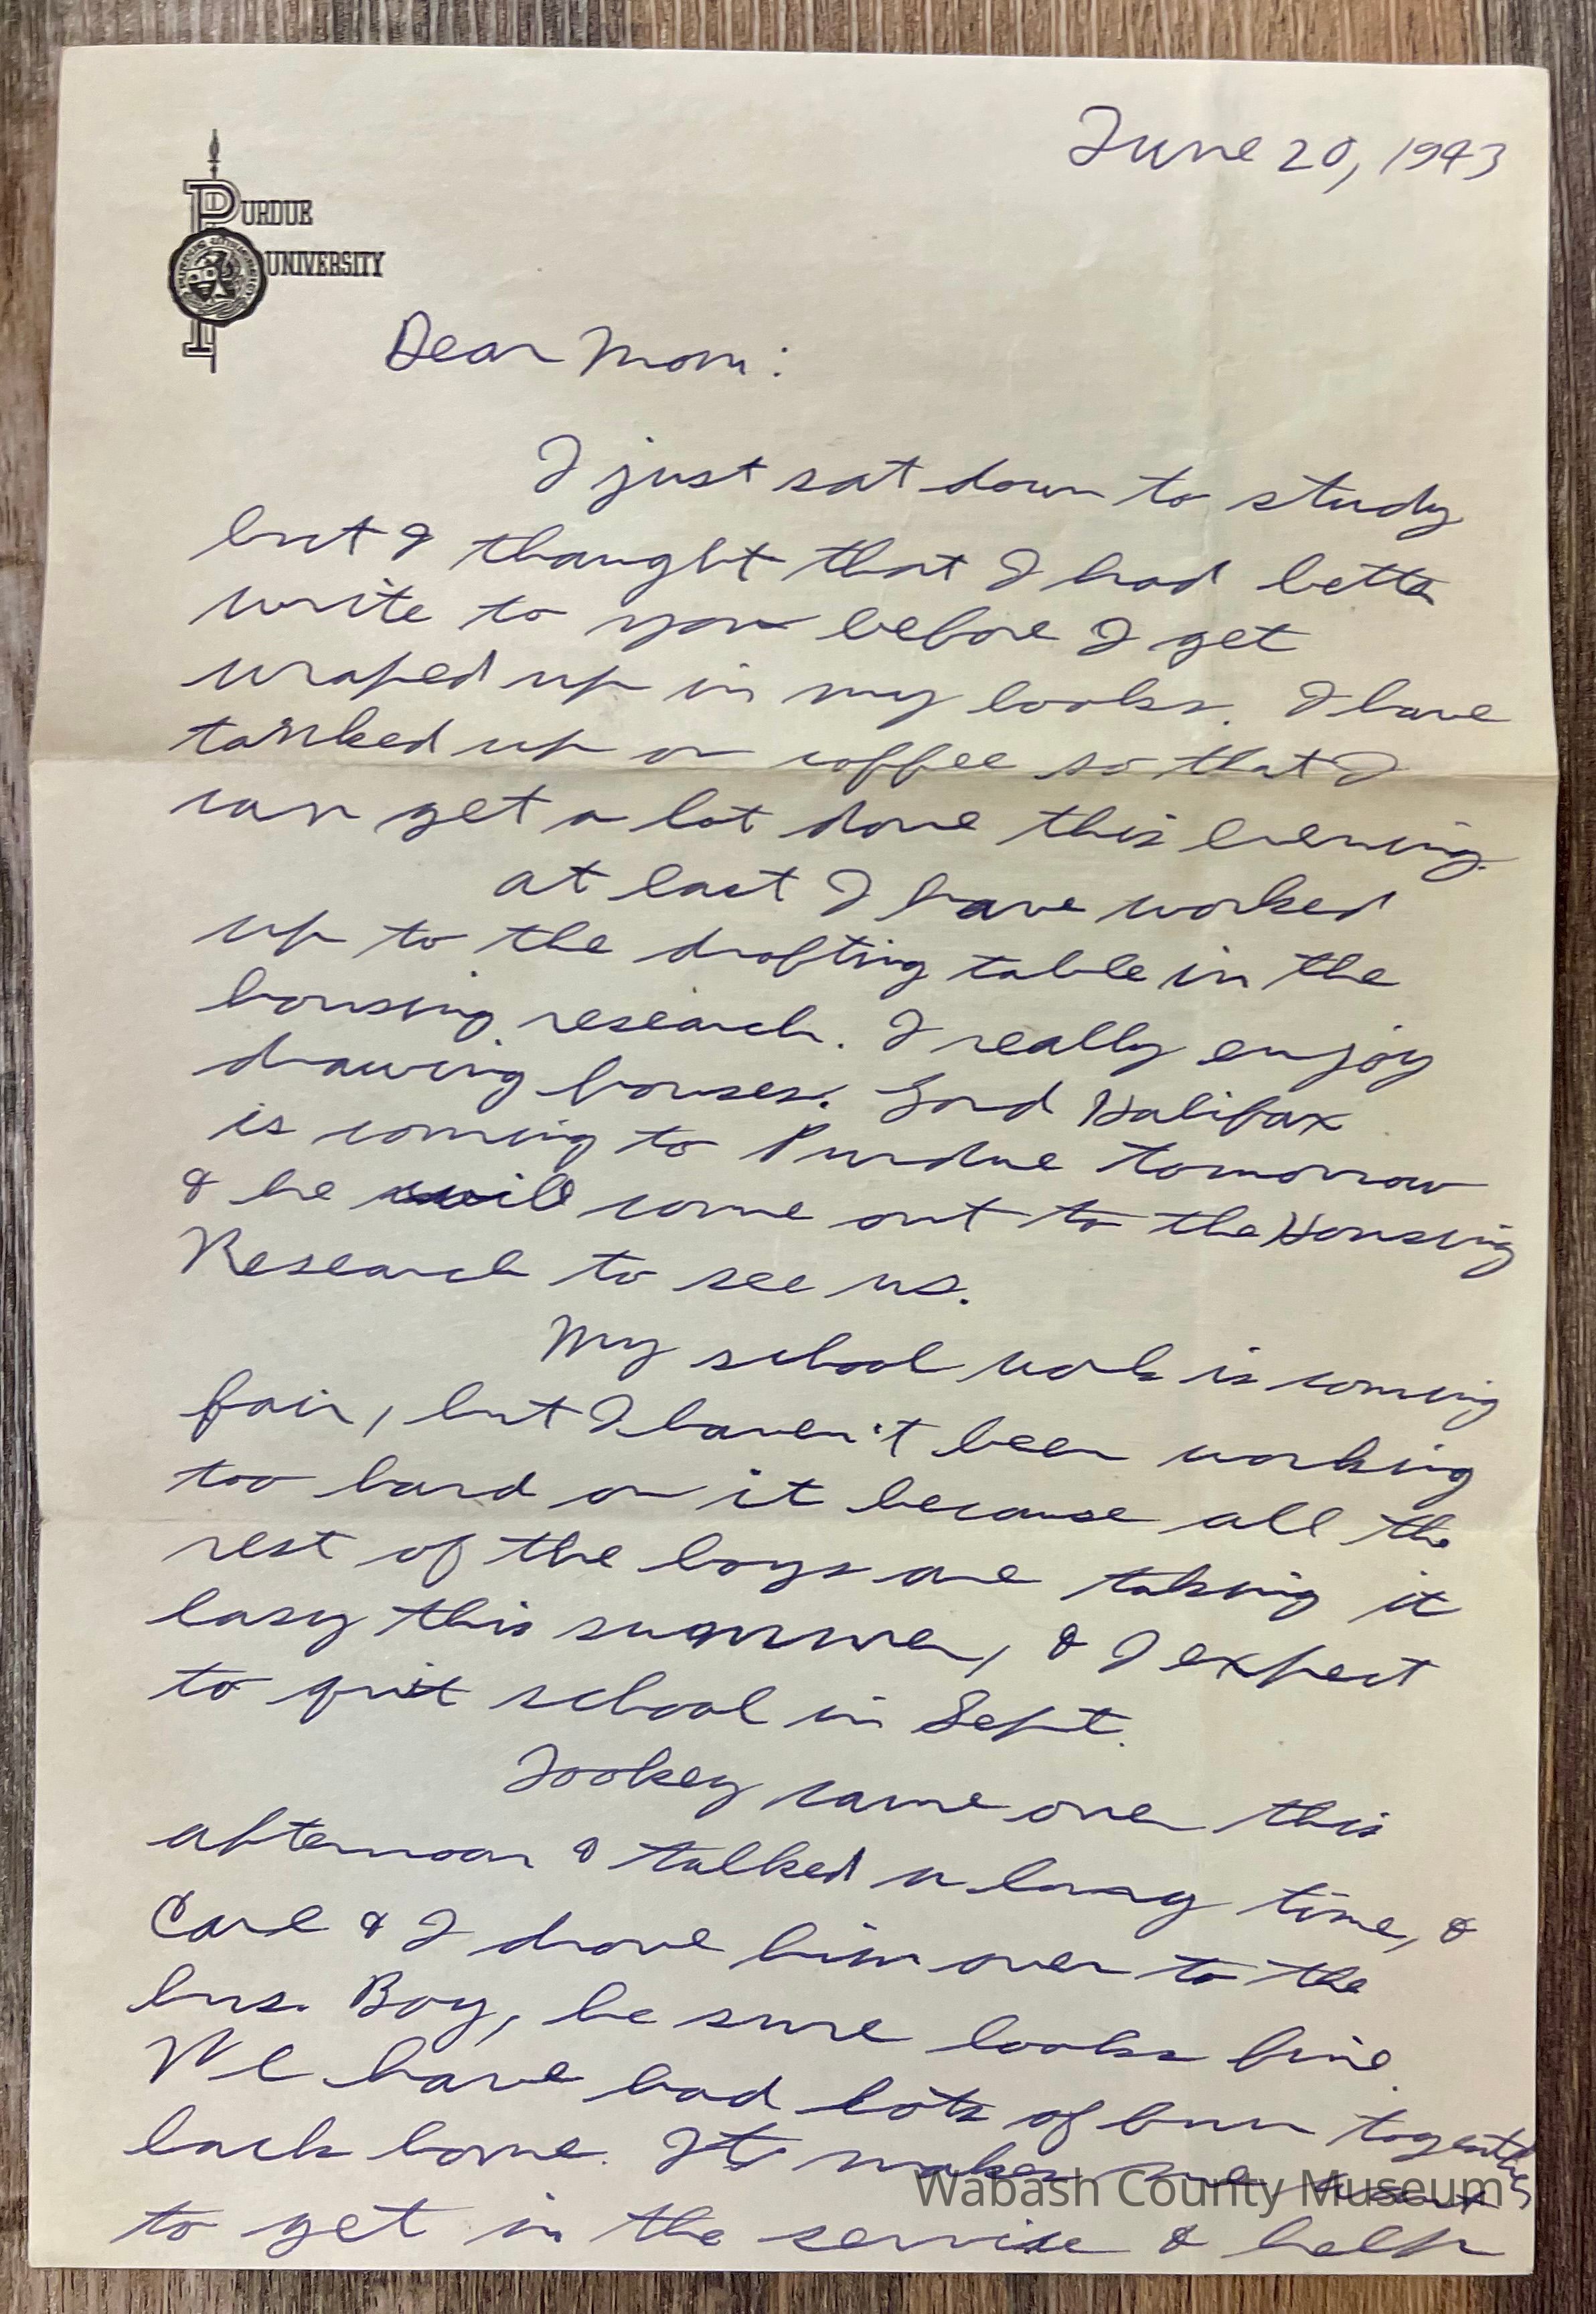 June 20, 1943
PURDUE
UNIVERSITY
Dear Mom:
I just sat down to study
but I thought that I had better
write to you before I get
wraped up in my books. I have
tanked up on coffee so that I
can get a lot done this evening.
at last I have worked
up to the drafting table in the
housing research. I really enjoy
drawing houses. Lord Halifax
is coming to Purdue tomorrow
& he will come out to the Housing
Research to see us.
My school work is coming
fair, but I haven't been working
too hard on it because all the
rest of the boys are taking it
easy this summer, & I expect
to quit school in Sept.
Tookey came over this
afternoon & talked a long time, &
Carl & I drove him over to the
bus. Boy, he sure looks fine.
We have had lots of fun together
back home. It makes me want
to get in the service & help
Wabash County Museum